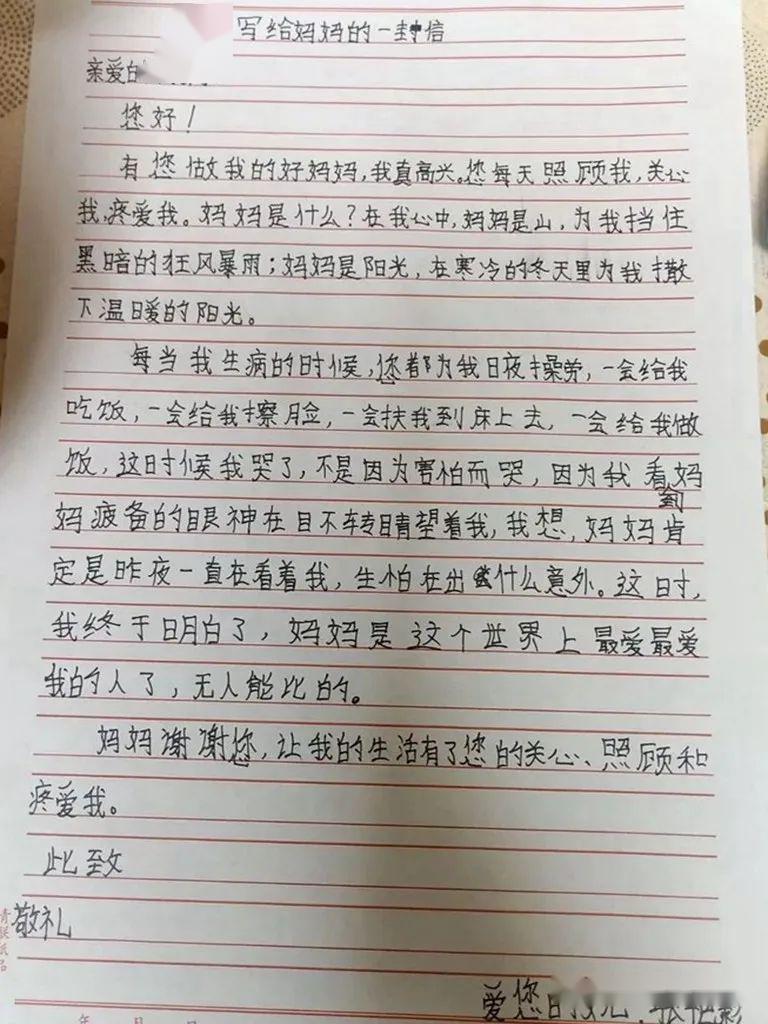 写给妈妈的一封信
亲爱的
您好！
有您做我的好妈妈，我真高兴。您每天照顾我，关心
我，疼爱我。妈妈是什么？在我心中，妈妈是山，为我挡住
黑暗的狂风暴雨；妈妈是阳光，在寒冷的冬天里为我撒
下温暖的阳光。
每当我生病的时候，您都为我日夜操劳，一会给我
吃饭，一会给我擦脸，一会扶我到床上去，一会给我做
饭，这时候我哭了，不是因为害怕而哭，因为我看到妈
妈疲备的眼神在目不转睛望着我，我想，妈妈肯
定是昨夜一直在看着我，生怕在出什么意外。这时，
我终于明白了，妈妈是这个世界上最爱最爱
我的人了，无人能比的。
妈妈谢谢您，让我的生活有了您的关心、照顾和
疼爱我。
此致
敬礼
爱您
年 月 日